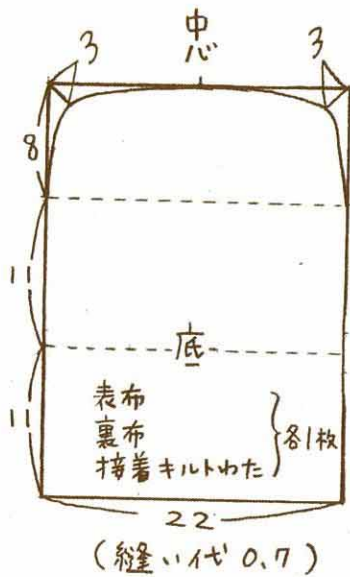 中心
3 3
8
11
底
11
表布
裏布
接着キルトわた
各1枚
22
(縫い代 0.7)